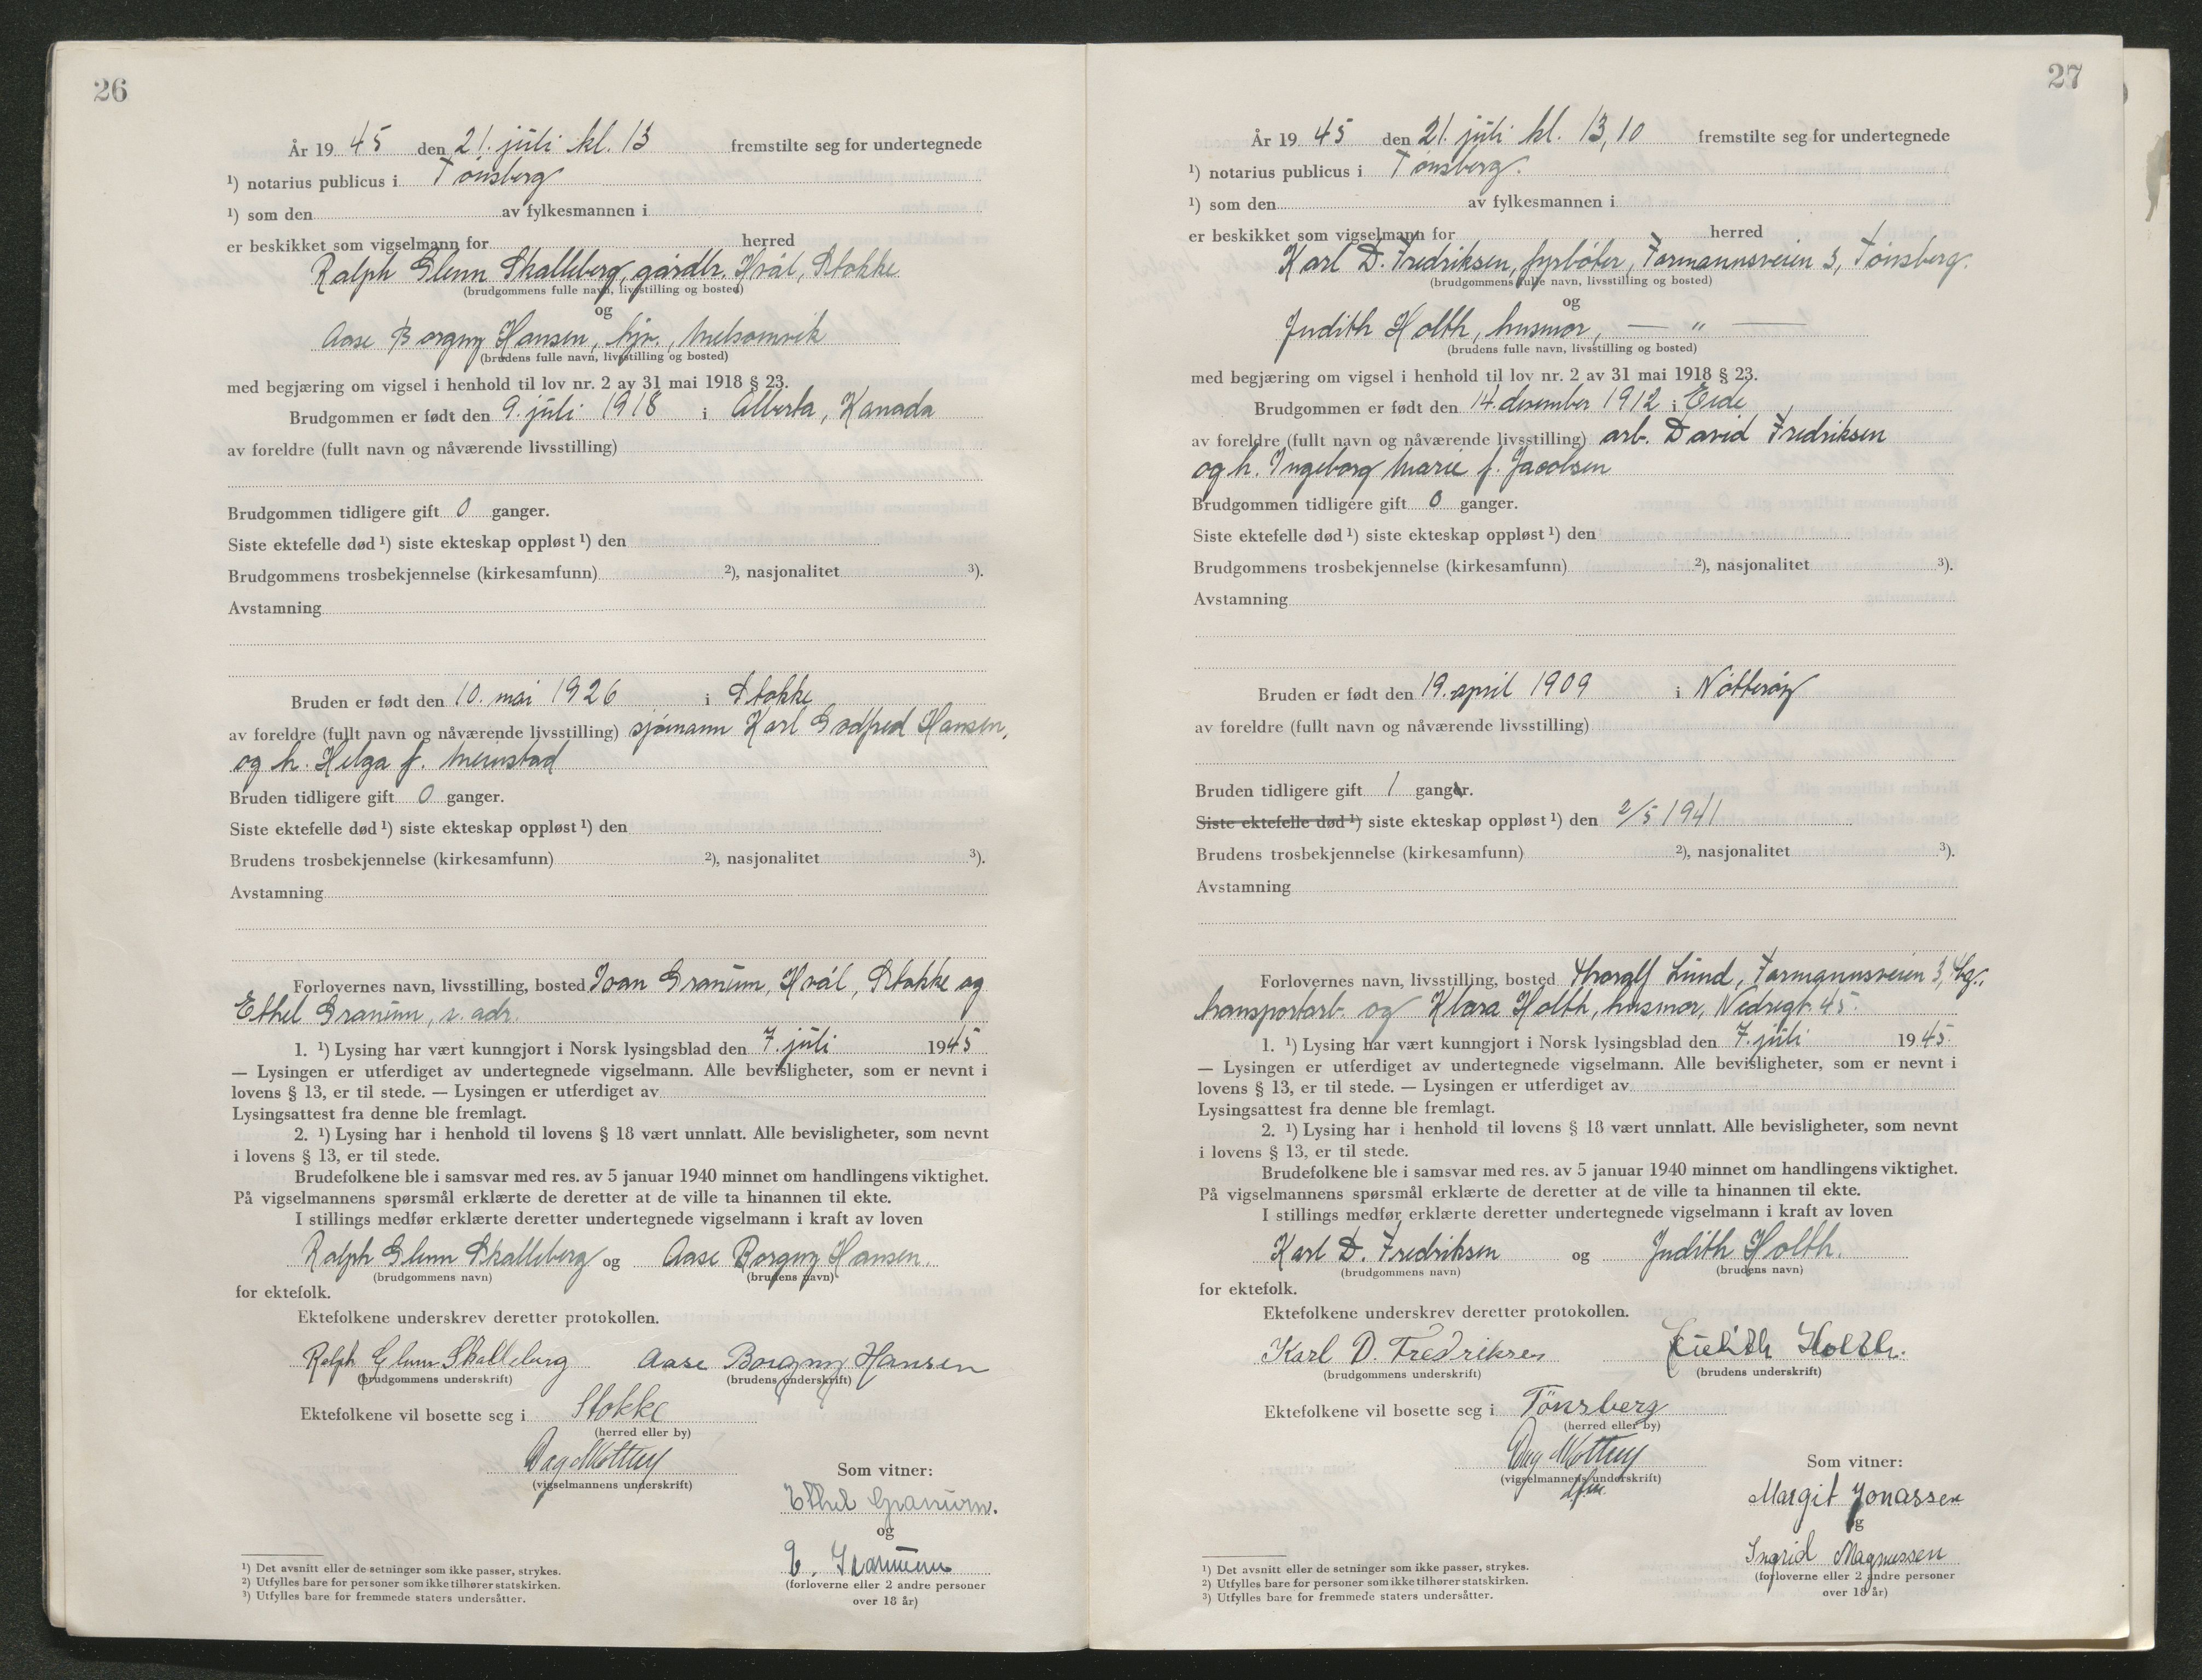 26
År 1945 den 21. juli kl. 13 fremstilte seg for undertegnede
¹) notarius publicus i Tönsberg
¹) som den av fylkesmannen i
er beskikket som vigselmann for herred
Ralph Glenn Skalleberg, gårdbr. Hvål, Stokke
(brudgommens fulle navn, livsstilling og bosted)
og
Aase Borgny Hansen, hjv., Melsomvik
(brudens fulle navn, livsstilling og bosted)
med begjæring om vigsel i henhold til lov nr. 2 av 31 mai 1918 § 23.
Brudgommen er født den 9. juli 1918 i Alberta, Kanada
av foreldre (fullt navn og nåværende livsstilling)
Brudgommen tidligere gift 0 ganger.
Siste ektefelle død ¹) siste ekteskap oppløst ¹) den
Brudgommens trosbekjennelse (kirkesamfunn) ²), nasjonalitet ³).
Avstamning
Bruden er født den 10. mai 1926 i Stokke
av foreldre (fullt navn og nåværende livsstilling) sjømann Karl Godfred Hansen,
og h. Helga f. Meinstad
Bruden tidligere gift 0 ganger.
Siste ektefelle død ¹) siste ekteskap oppløst ¹) den
Brudens trosbekjennelse (kirkesamfunn) ²), nasjonalitet ³).
Avstamning
Forlovernes navn, livsstilling, bosted Ivan Granum, Hvål, Stokke og
Ethel Granum, s. adr.
1. ¹) Lysing har vært kunngjort i Norsk lysingsblad den 7. juli 1945
— Lysingen er utferdiget av undertegnede vigselmann. Alle bevisligheter, som er nevnt i
lovens § 13, er til stede. — Lysingen er utferdiget av
Lysingsattest fra denne ble fremlagt.
2. ¹) Lysing har i henhold til lovens § 18 vært unnlatt. Alle bevisligheter, som nevnt
i lovens § 13, er til stede.
Brudefolkene ble i samsvar med res. av 5 januar 1940 minnet om handlingens viktighet.
På vigselmannens spørsmål erklærte de deretter at de ville ta hinannen til ekte.
I stillings medfør erklærte deretter undertegnede vigselmann i kraft av loven
Ralph Glenn Skalleberg og Aase Borgny Hansen.
(brudgommens navn) (brudens navn)
for ektefolk.
Ektefolkene underskrev deretter protokollen.
Ralph Glenn Skalleberg Aase Borgny Hansen
(brudgommens underskrift) (brudens underskrift)
Ektefolkene vil bosette seg i Stokke
(herred eller by)
(vigselmannens underskrift)
Som vitner:
Ethel Granum.
og
Granum
(forloverne eller 2 andre personer
over 18 år)
¹) Det avsnitt eller de setninger som ikke passer, strykes.
²) Utfylles bare for personer som ikke tilhører statskirken.
³) Utfylles bare for fremmede staters undersåtter.
27
År 1945 den 21. juli kl. 13,10 fremstilte seg for undertegnede
¹) notarius publicus i Tönsberg.
¹) som den av fylkesmannen i
er beskikket som vigselmann for herred
Karl D. Fredriksen, fyrböter, Farmannsveien 3, Tönsberg.
(brudgommens fulle navn, livsstilling og bosted)
og
Judith Holth, husmor, — " —
(brudens fulle navn, livsstilling og bosted)
med begjæring om vigsel i henhold til lov nr. 2 av 31 mai 1918 § 23.
Brudgommen er født den 14. desember 1912 i Eide
av foreldre (fullt navn og nåværende livsstilling) arb. David Fredriksen
og h. Ingeborg Marie f. Jacobsen
Brudgommen tidligere gift 0 ganger.
Siste ektefelle død ¹) siste ekteskap oppløst ¹) den
Brudgommens trosbekjennelse (kirkesamfunn) ²), nasjonalitet ³).
Avstamning
Bruden er født den 19. april 1909 i Nötteröy
av foreldre (fullt navn og nåværende livsstilling)
Bruden tidligere gift 1 ganger.
Siste ektefelle død ¹) siste ekteskap oppløst ¹) den 2/5 1941
Brudens trosbekjennelse (kirkesamfunn) ²), nasjonalitet ³).
Avstamning
Forlovernes navn, livsstilling, bosted Thoralf Lund, Farmannsveien 3, Tbg.,
transportarb. og Klara Holth, husmor, Nedregt. 45.
1. ¹) Lysing har vært kunngjort i Norsk lysingsblad den 7. juli 1945.
— Lysingen er utferdiget av undertegnede vigselmann. Alle bevisligheter, som er nevnt i
lovens § 13, er til stede. — Lysingen er utferdiget av
Lysingsattest fra denne ble fremlagt.
2. ¹) Lysing har i henhold til lovens § 18 vært unnlatt. Alle bevisligheter, som nevnt
i lovens § 13, er til stede.
Brudefolkene ble i samsvar med res. av 5 januar 1940 minnet om handlingens viktighet.
På vigselmannens spørsmål erklærte de deretter at de ville ta hinannen til ekte.
I stillings medfør erklærte deretter undertegnede vigselmann i kraft av loven
Karl D. Fredriksen og Judith Holth.
(brudgommens navn) (brudens navn)
for ektefolk.
Ektefolkene underskrev deretter protokollen.
Karl D. Fredriksen Judith Holth.
(brudgommens underskrift) (brudens underskrift)
Ektefolkene vil bosette seg i Tönsberg
(herred eller by)
(vigselmannens underskrift)
Som vitner:
Margit Jonassen
og
Ingrid Magnussen
(forloverne eller 2 andre personer
over 18 år)
¹) Det avsnitt eller de setninger som ikke passer, strykes.
²) Utfylles bare for personer som ikke tilhører statskirken.
³) Utfylles bare for fremmede staters undersåtter.